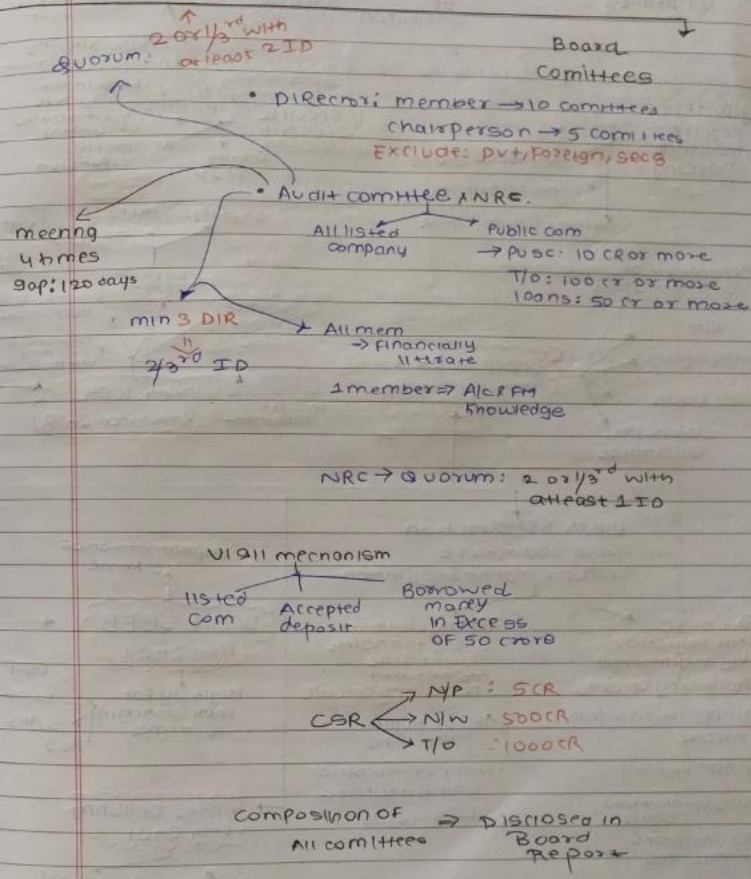 2 or 1/3rd with
atleast 2 ID
Quorum:
Board
Comittees
• Director: member → 10 comittees
chairperson → 5 comittees
Exclude: Pvt, Foreign, sec8
• Audit comittee & NRC.
All listed
company
Public com
→ PUSC: 10 CR or more
T/O: 100 cr or more
loans: 50 cr or more
meeting
4 times
gap: 120 days
min 3 DIR
2/3rd ID
All mem
→ Financially
litrate
1 member ⇒ A/C & FM
knowledge
NRC → Quorum: 2 or 1/3rd with
atleast 1 ID
Vigil mechanism
listed
com
Accepted
deposit
Borrowed
money
in Excess
OF 50 crore
CSR
→ N/P : 5CR
→ N/W : 500CR
→ T/O : 1000CR
composition of
All comittees
⇒ Disclosed in
Board
Report